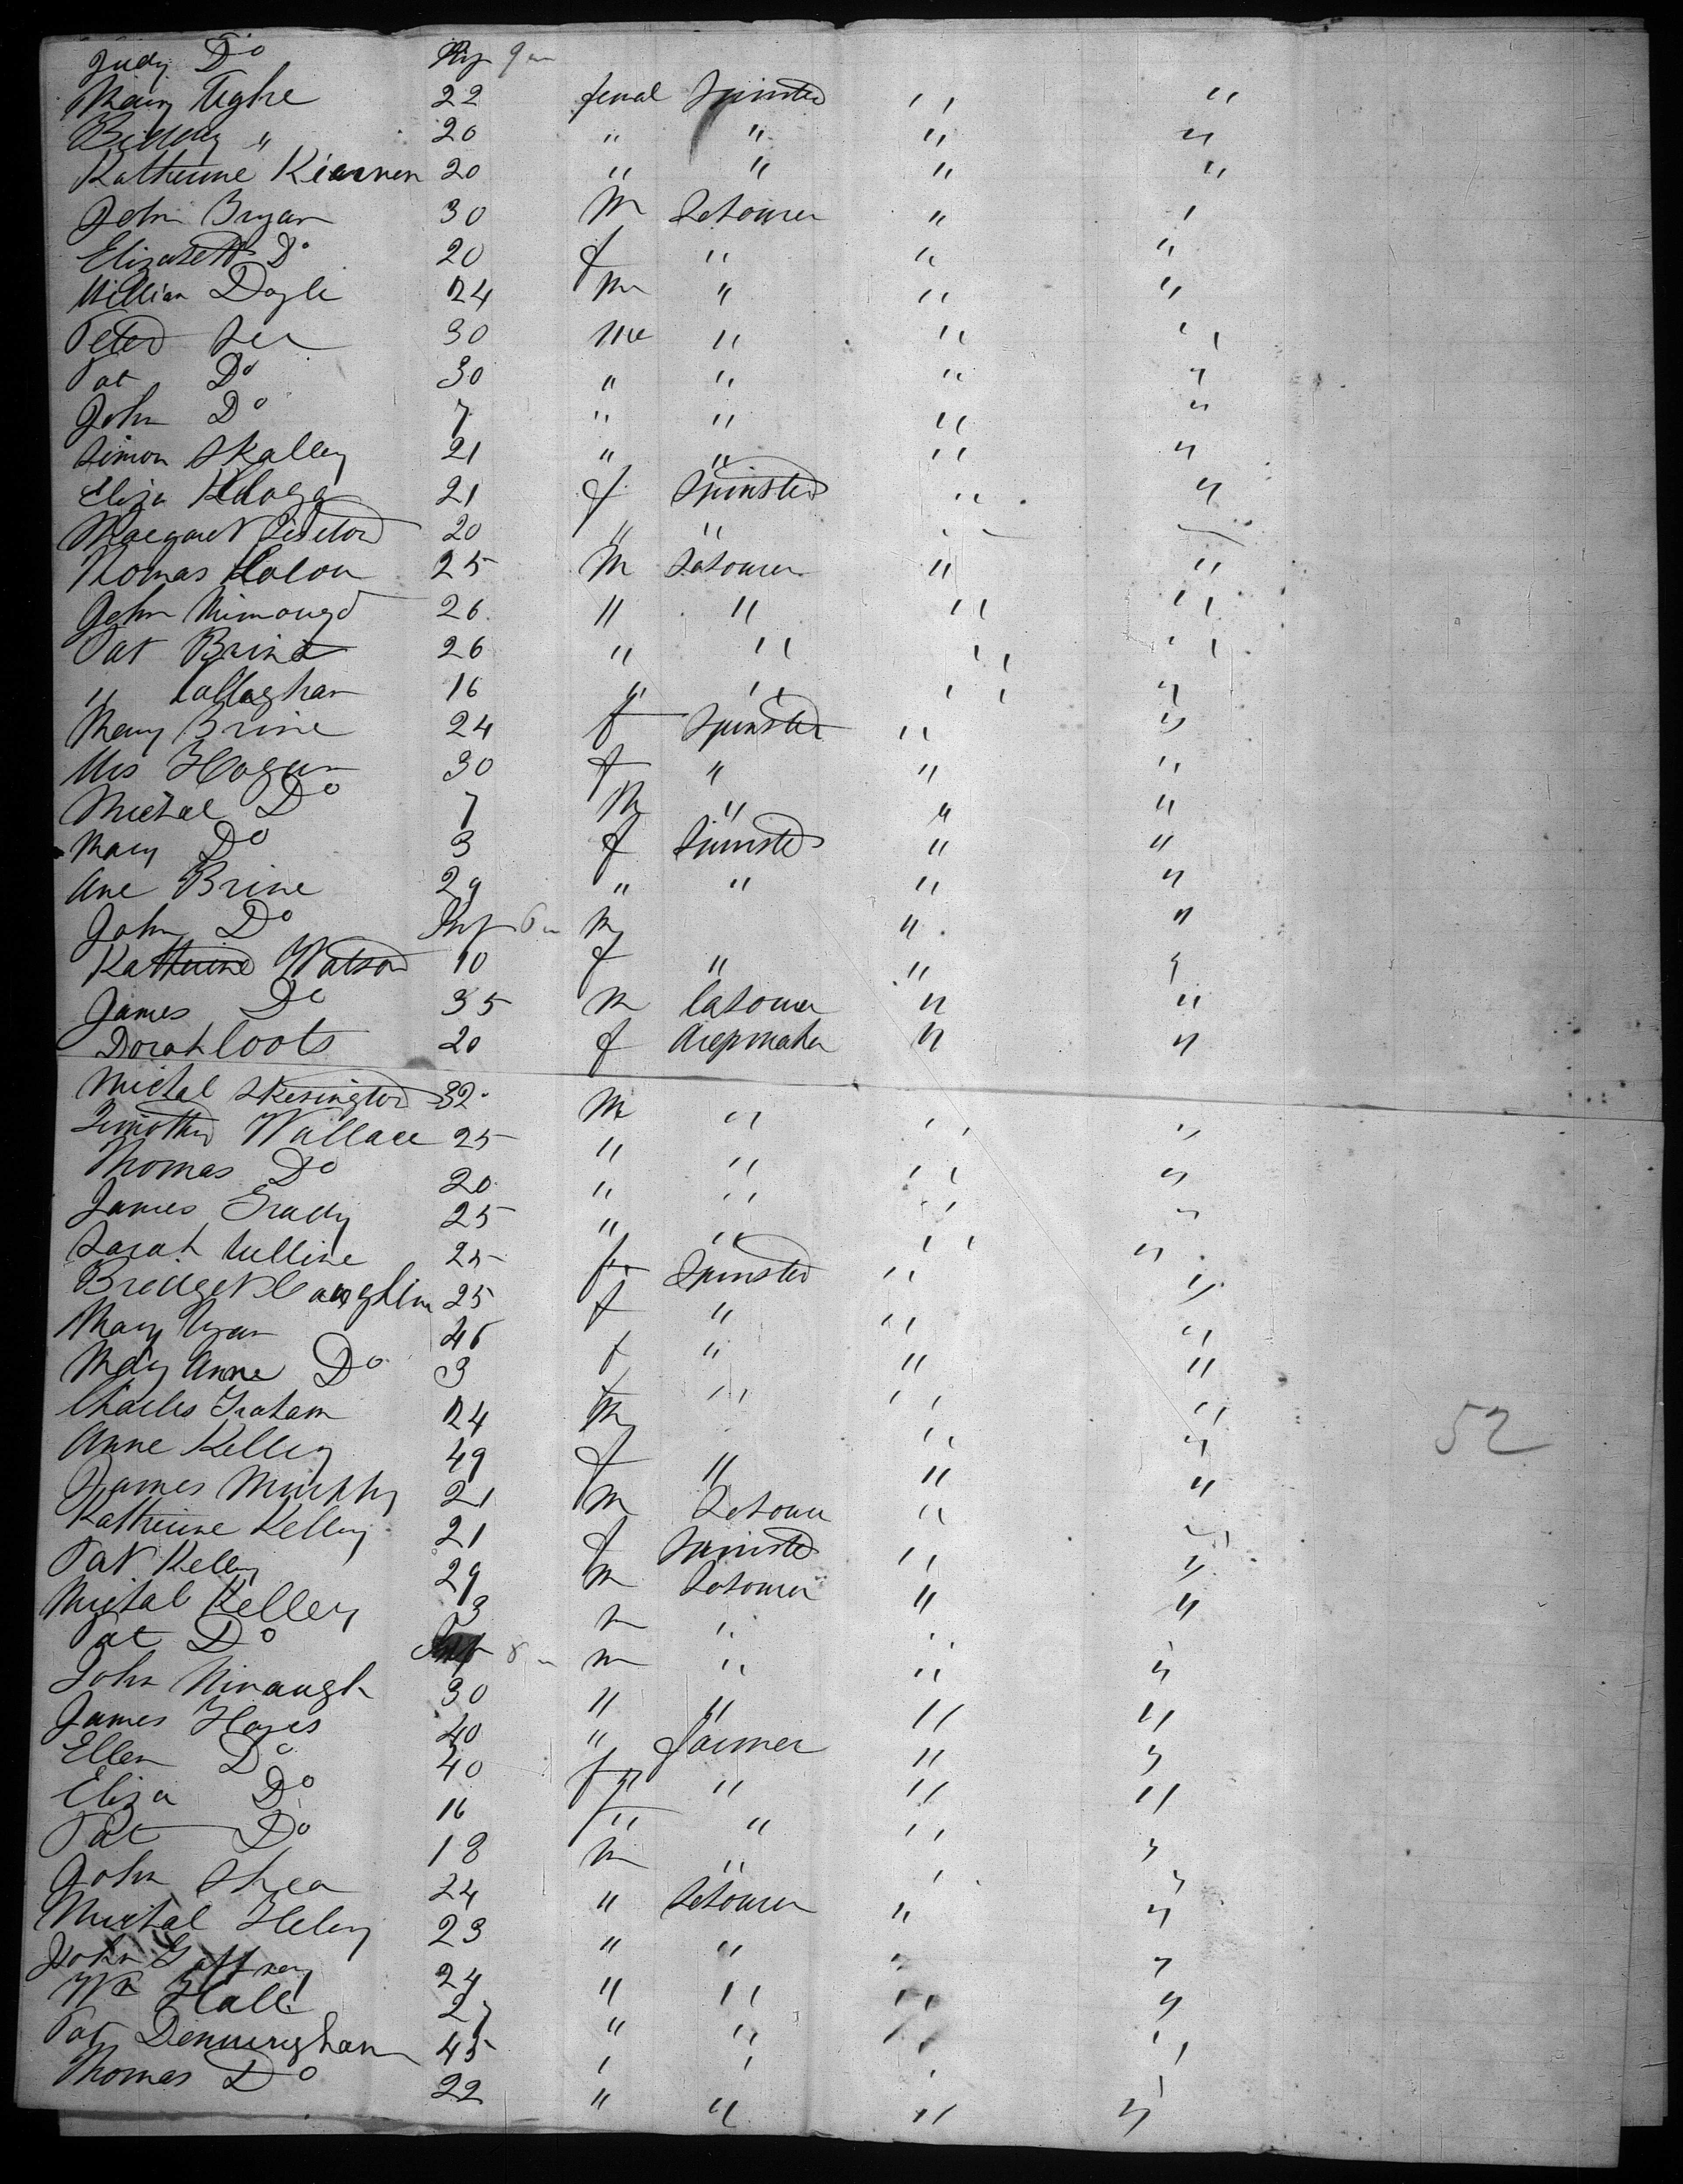 Judy Do 9 m
Mary Tighe 22 femal Spinster " "
Biddy " 20 " " " "
Katherine Kiernen 20 " " " "
John Bryan 30 M Labourer " "
Elizabeth Do 20 f " " "
William Doyle 24 m " " "
Peter Lee 30 m " " "
Pat Do 30 " " " "
John Do 7 " " " "
Simon Skalley 21 " " " "
Eliza 21 f Spinster " "
Margaret 20 " "
Thomas 25 M Labourer " "
John 26 " " " "
Pat Brine 26 " " " "
" Callaghan 16 " " " "
Mary Brine 24 f Spinster " "
Mrs Hogan 30 f " " "
Michal Do 7 M " " "
Mary Do 3 f Spinster " "
Ane Brine 29 " " " "
John Do Inf 6 m M " "
Katherine Watson 10 f " " "
James Do 35 m labourer " "
Dorah Coots 20 f " "
Michal Skesington 32 M " " "
Timothy Wallace 25 " " " "
Thomas Do 20 " " " "
James Grady 25 " " " "
Sarah Culline 25 f Spinster " "
Bridget Caughlin 25 f " " "
Mary 46 f " " "
Mary Anne Do 3 f " " "
Charles Graham 24 M " "
Anne Kelley 49 f " " "
James Murphy 21 M Labourer " "
Katherine Kelley 21 f Spinster " "
Pat Kelley 29 m Labourer " "
Michal Kelley 3 m " " "
Pat Do Inf 8 m m " " "
John Ninaugh 30 " " " "
James Hayes 40 " farmer " "
Ellen Do 40 f " " "
Eliza Do 16 f " " "
Pat Do 18 m " " "
John Shea 24 " Labourer " "
Michal Heley 23 " " " "
John Gaffney 24 " " " "
Wm Hall 27 " " " "
Pat Denningham 45 " " " "
Thomas Do 22 " " " "
52